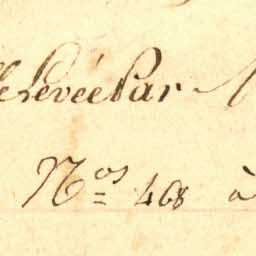 Levée Par
N.os 468 à